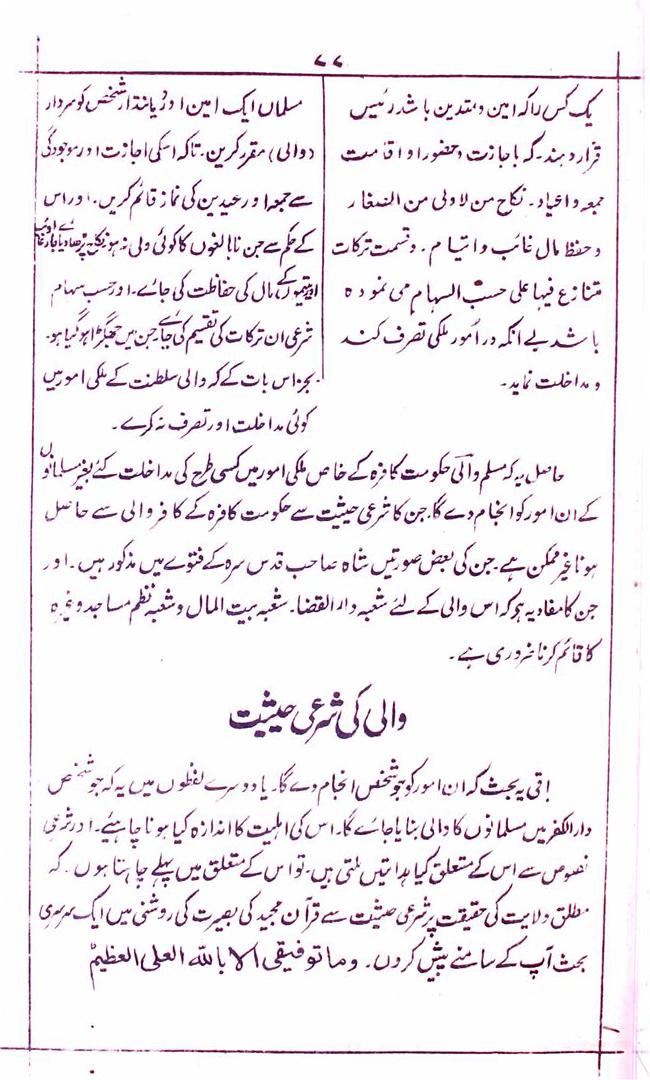 ۷۷
یک کس را کہ امین و متدین باشد رئیس
قرار دہند۔ کہ با جازت و حضور او اقامت
جمعہ و اعیاد۔ نکاح من لا ولی من الصغار
و حفظ مال غائب و ایتام۔ و قسمت ترکات
متنازع فیہا علی حسب السہام می نمودہ
باشد بے انکہ در اُمور ملکی تصرف کند
و مداخلت نماید۔
مسلمان ایک امین اور دیانتدار شخص کو سردار
(والی) مقرر کریں۔ تاکہ اسکی اجازت اور موجودگی
سے جمعہ اور عیدین کی نماز قائم کریں۔ اور اس
کے حکم سے جن نابالغوں کا کوئی ولی نہ ہو نکاح پڑھا دیا جائے اور
یتیموں کے مال کی حفاظت کی جائے۔ اور حسب سہام
شرعی ان ترکات کی تقسیم کی جائے جن میں جھگڑا ہو گیا ہو۔
بجز اس بات کے کہ والی سلطنت کے ملکی امور میں
کوئی مداخلت اور تصرف نہ کرے۔
حاصل یہ کہ مسلم والی حکومت کافرہ کے خاص ملکی امور میں کسی طرح کی مداخلت کئے بغیر مسلمانوں
کے ان امور کو انجام دے گا۔ جن کا شرعی حیثیت سے حکومت کافرہ کے کافر والی سے حاصل
ہونا غیر ممکن ہے۔ جن کی بعض صورتیں شاہ صاحب قدس سرہ کے فتوے میں مذکور ہیں۔ اور
جن کا مفاد یہ ہے کہ اس والی کے لئے شعبہ دار القضا۔ شعبہ بیت المال و شعبہ نظم مساجد وغیرہ
کا قائم کرنا ضروری ہے۔
والی کی شرعی حیثیت
باقی یہ بحث کہ ان امور کو جو شخص انجام دے گا۔ یا دوسرے لفظوں میں یہ کہ جو شخص
دار الکفر میں مسلمانوں کا والی بنایا جائے گا۔ اس کی اہلیت کا اندازہ کیا ہونا چاہیئے۔ اور شرعی
نصوص سے اس کے متعلق کیا ہدایتیں ملتی ہیں۔ تو اس کے متعلق میں پہلے چاہتا ہوں۔ کہ
مطلق ولایت کی حقیقت پر شرعی حیثیت سے قرآن مجید کی بصیرت کی روشنی میں ایک سرسری
بحث آپ کے سامنے پیش کردوں۔ وما توفیقی الا باللہ العلی العظیم